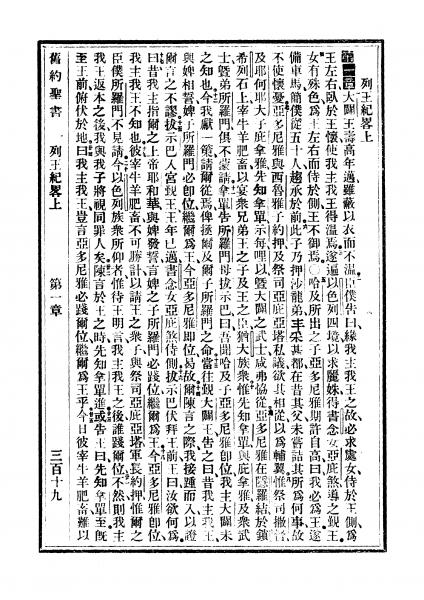 列王紀畧上
第一章 大闢王壽高年邁雖蔽以衣而不溫臣僕告曰緣我主我王之故必求處女侍於王側爲
王左右臥於王懷使我主我王得溫焉遂遍以色列四境以求麗姝得書念女亞庇煞導之覲王
女有殊色爲王左右而侍於側王不御焉〇哈及所出之子亞多尼雅期許自高曰我必爲王遂
備車馬簡僕從五十人趨承於前此子乃押沙龍弟丰采甚都在昔其父未嘗詰其所爲何事故
不使懷憂亞多尼雅與西魯雅子約押及祭司亞庇亞塔私議欲其相從以爲輔翼惟祭司撒督
及耶何耶大子庇拿雅先知拿單示每哩以及大闢之武士咸弗協從亞多尼雅在隱羅結於鎖
希列石上宰牛羊肥畜以宴衆兄弟王之子及王之臣猶大族衆惟先知拿單與庇拿雅及衆武
士曁弟所羅門俱不蒙請拿單告所羅門母拔示巴曰吾聞哈及子亞多尼雅卽位我主大闢未
之知也今我獻一策請爾從焉俾拯爾及爾子所羅門之命當往覲大闢王告之曰昔我主我王
與婢相誓婢子所羅門必卽位繼爾爲王今亞多尼雅卽位曷故爾陳言之際我接踵而入以證
爾言之不謬拔示巴入宮覲王王年已邁書念女亞庇煞侍側拔示巴伏拜王前王曰汝欲何爲
曰昔我主指爾之上帝耶和華與婢發誓言婢之子所羅門必踐位繼爾爲王今亞多尼雅卽位
我主我王不知也彼宰牛羊肥畜不可勝計以請王之衆子與祭司亞庇亞塔軍長約押惟爾之
臣僕所羅門不見請今以色列族衆所仰者惟待王明言我主我王之後誰踐爾位不然則我主
我王返本之後我與我子將視同罪人矣陳言於王之時先知拿單進或告王曰先知拿單至旣
至王前俯伏於地曰我主我王豈言亞多尼雅必踐爾位繼爾爲王乎今日彼宰牛羊肥畜難以
舊約聖書 列王紀畧上 第一章 三百十九